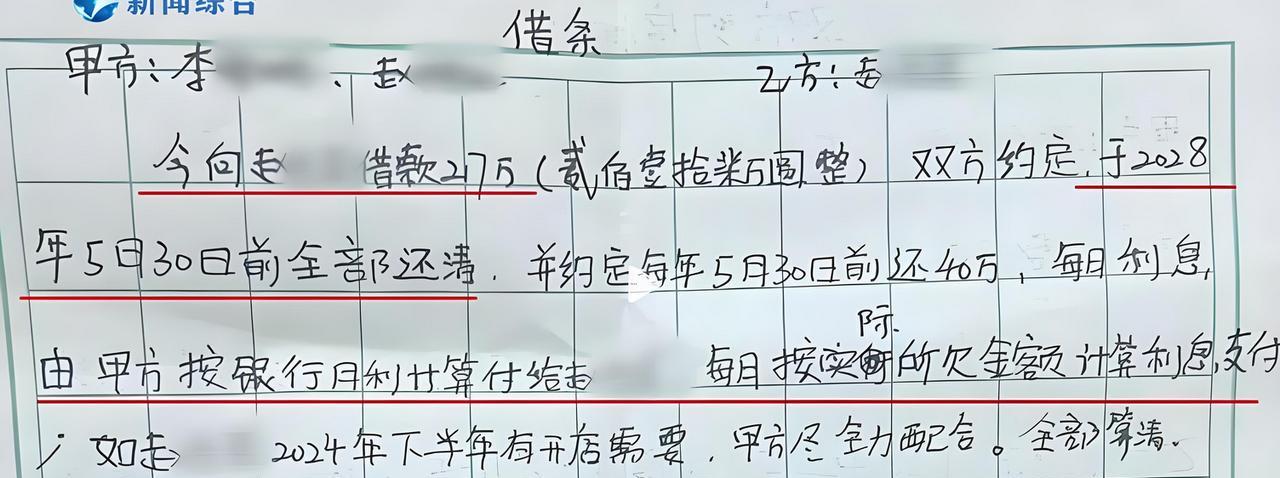 新闻综合
借条
甲方：李 、赵 乙方：赵
今向赵 借款217万（贰佰壹拾柒万圆整） 双方约定，于2028
年5日30日前全部还清．并约定每年5月30日前还40万，每月利息，
由甲方按银行月利计算付给赵 每月按实际所欠金额计算利息，支付
；如赵 2024年下半年有开店需要，甲方尽全力配合。全部算清．